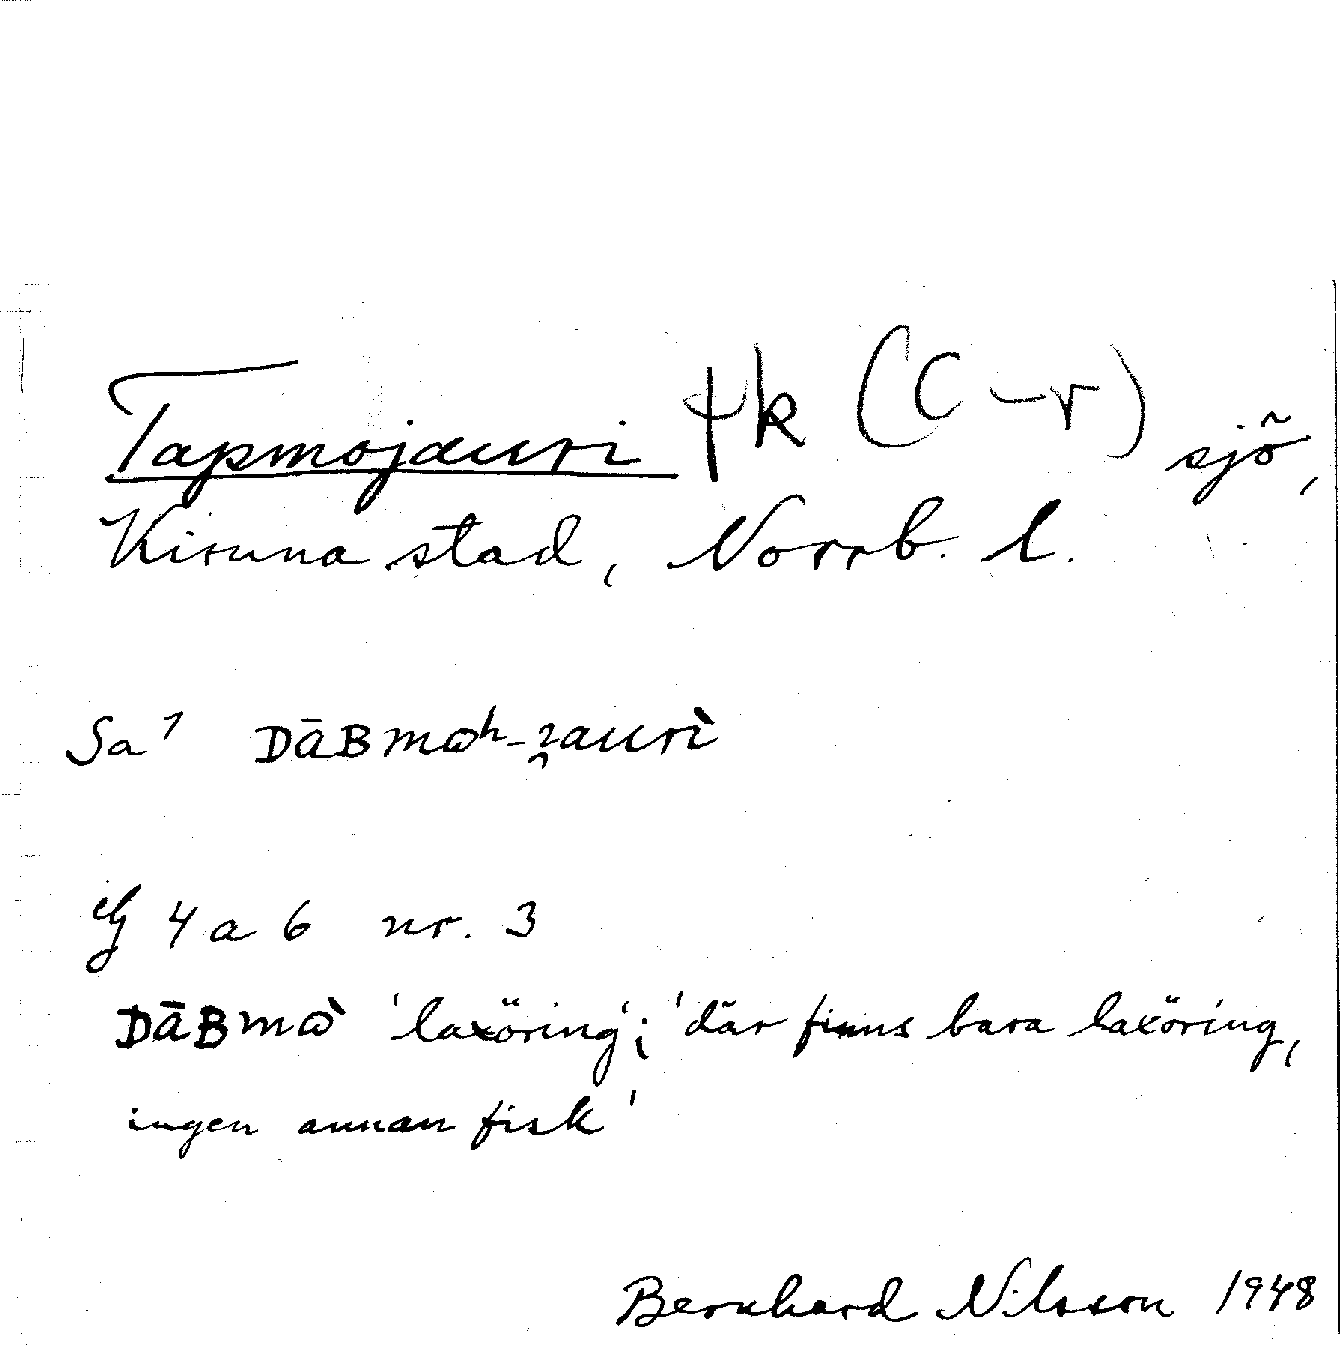 Tapmojauri ‡k (C–r) sjö,
Kiruna stad, Norrb. l.
Sa⁷ DāBmɷʰ-ᴉ̯auri̇̀
eg 4 a 6 nr. 3
DāBmɷ̀ 'laxöring'; 'där finns bara laxöring,
ingen annan fisk'
Bernhard Nilsson 1948